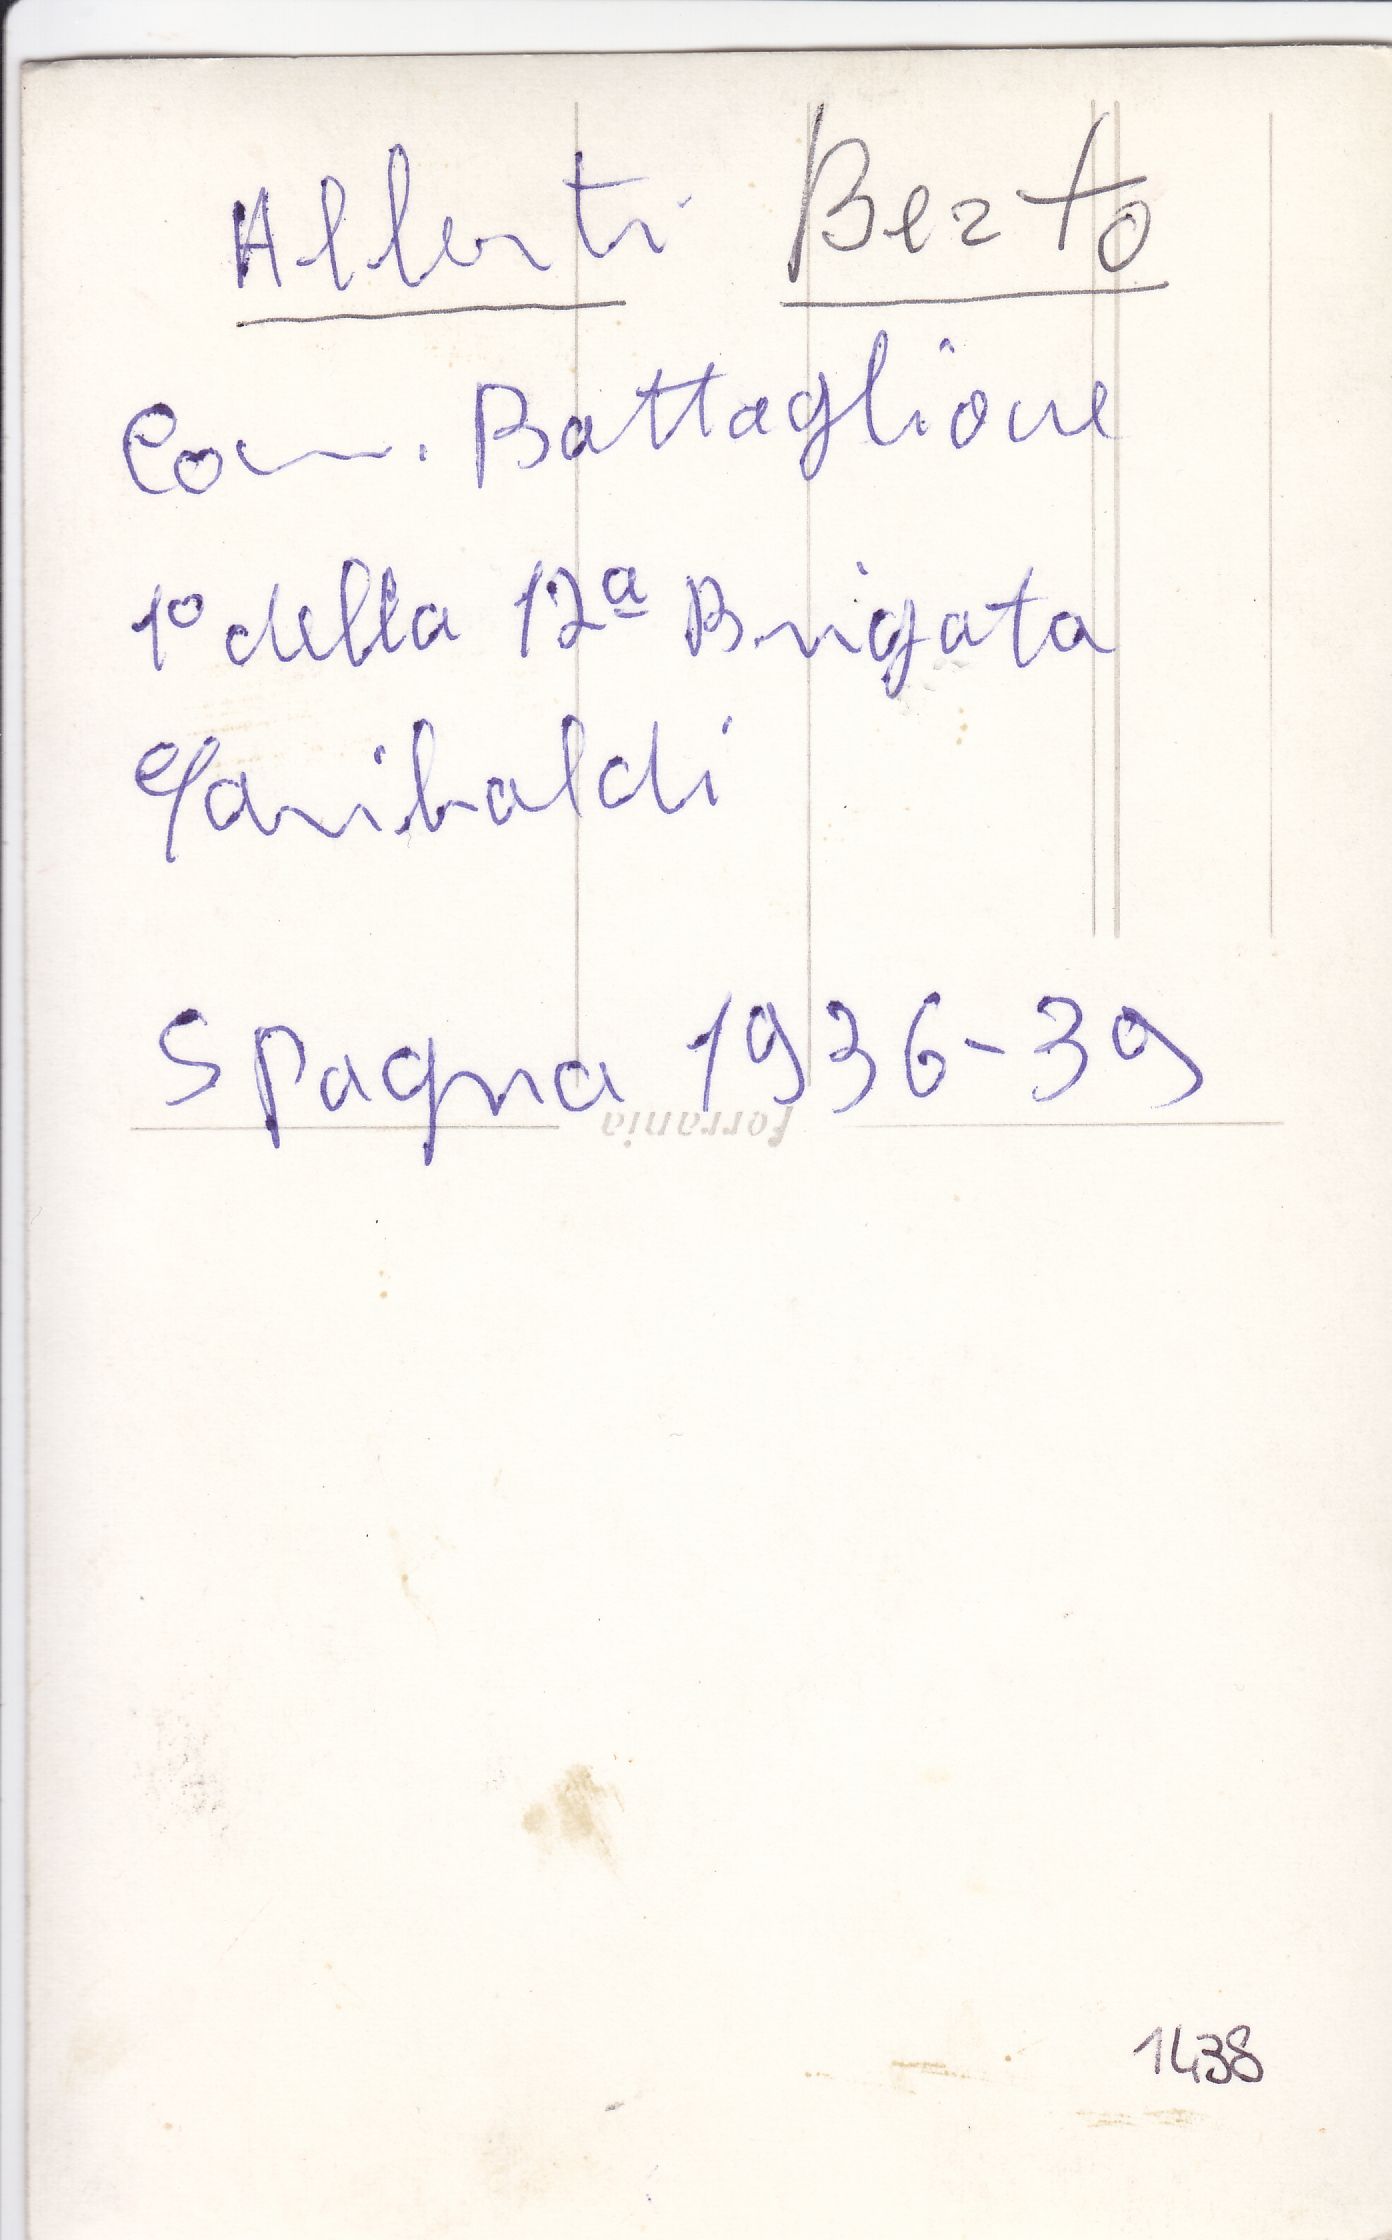 Alberti Berto
Com. Battaglione
1º della 12ª Brigata
Garibaldi
Spagna 1936-39
ferrania
1438